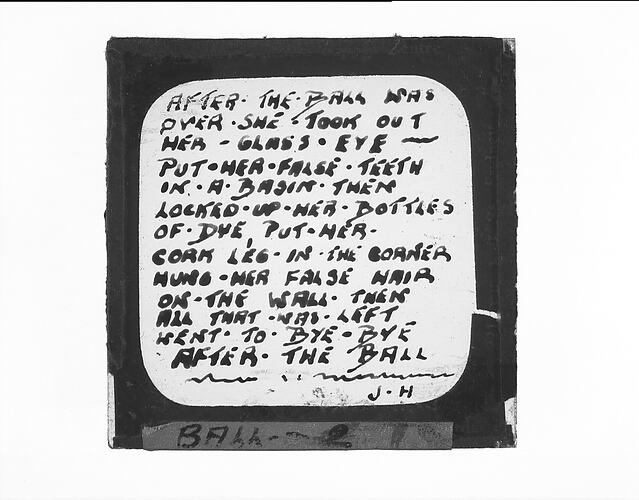 Centre
AFTER · THE · BALL WAS
OVER · SHE · TOOK OUT
HER - GLASS · EYE —
PUT · HER · FALSE · TEETH
IN · A · BASIN · THEN
LOCKED · UP · HER · BOTTLES
OF · DYE, PUT · HER ·
CORK LEG · IN · THE CORNER
HUNG · HER FALSE HAIR
ON · THE WALL · THEN
ALL THAT · WAS · LEFT
WENT · TO · BYE · BYE
AFTER · THE BALL
J · H
BALL - 2